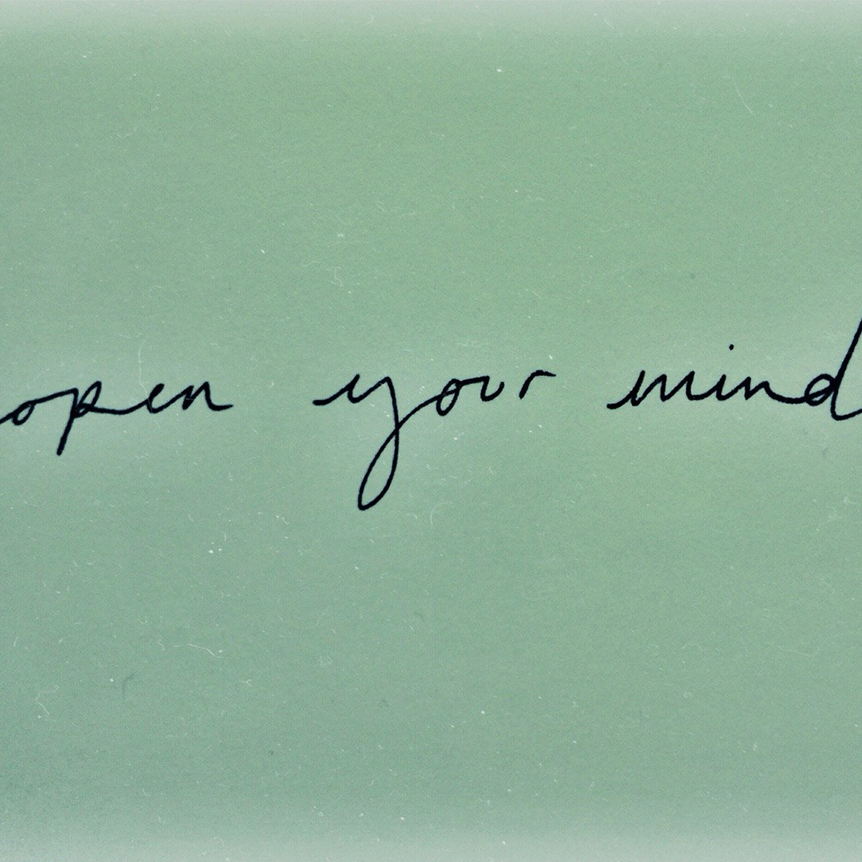 open your mind